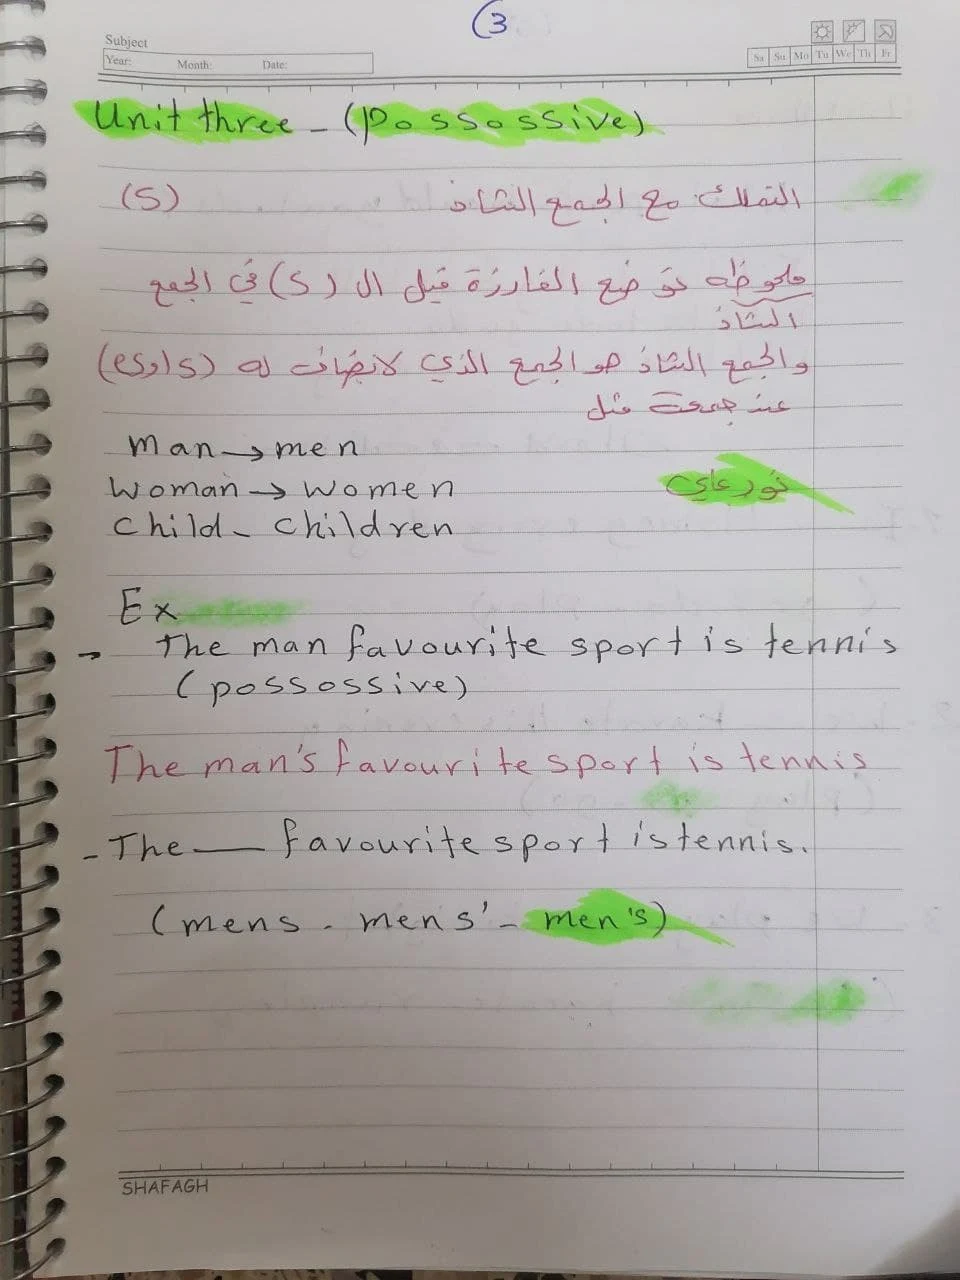 (3
Subject
Year: Month: Date:
Sa Su Mo Tu We Th Fr
Unit three - (possossive)
التملك مع الجمع الشاذ (s)
ملحوظه توضع الفارزة قبل ال (s) في الجمع
الشاذ
والجمع الشاذ هو الجمع الذي لانضاف له (s او es)
عند جمعة مثل
man → men
woman → women
child - children
Ex
- The man favourite sport is tennis
(possossive)
The man's favourite sport is tennis
- The ___ favourite sport is tennis.
(mens - mens' - men's)
SHAFAGH